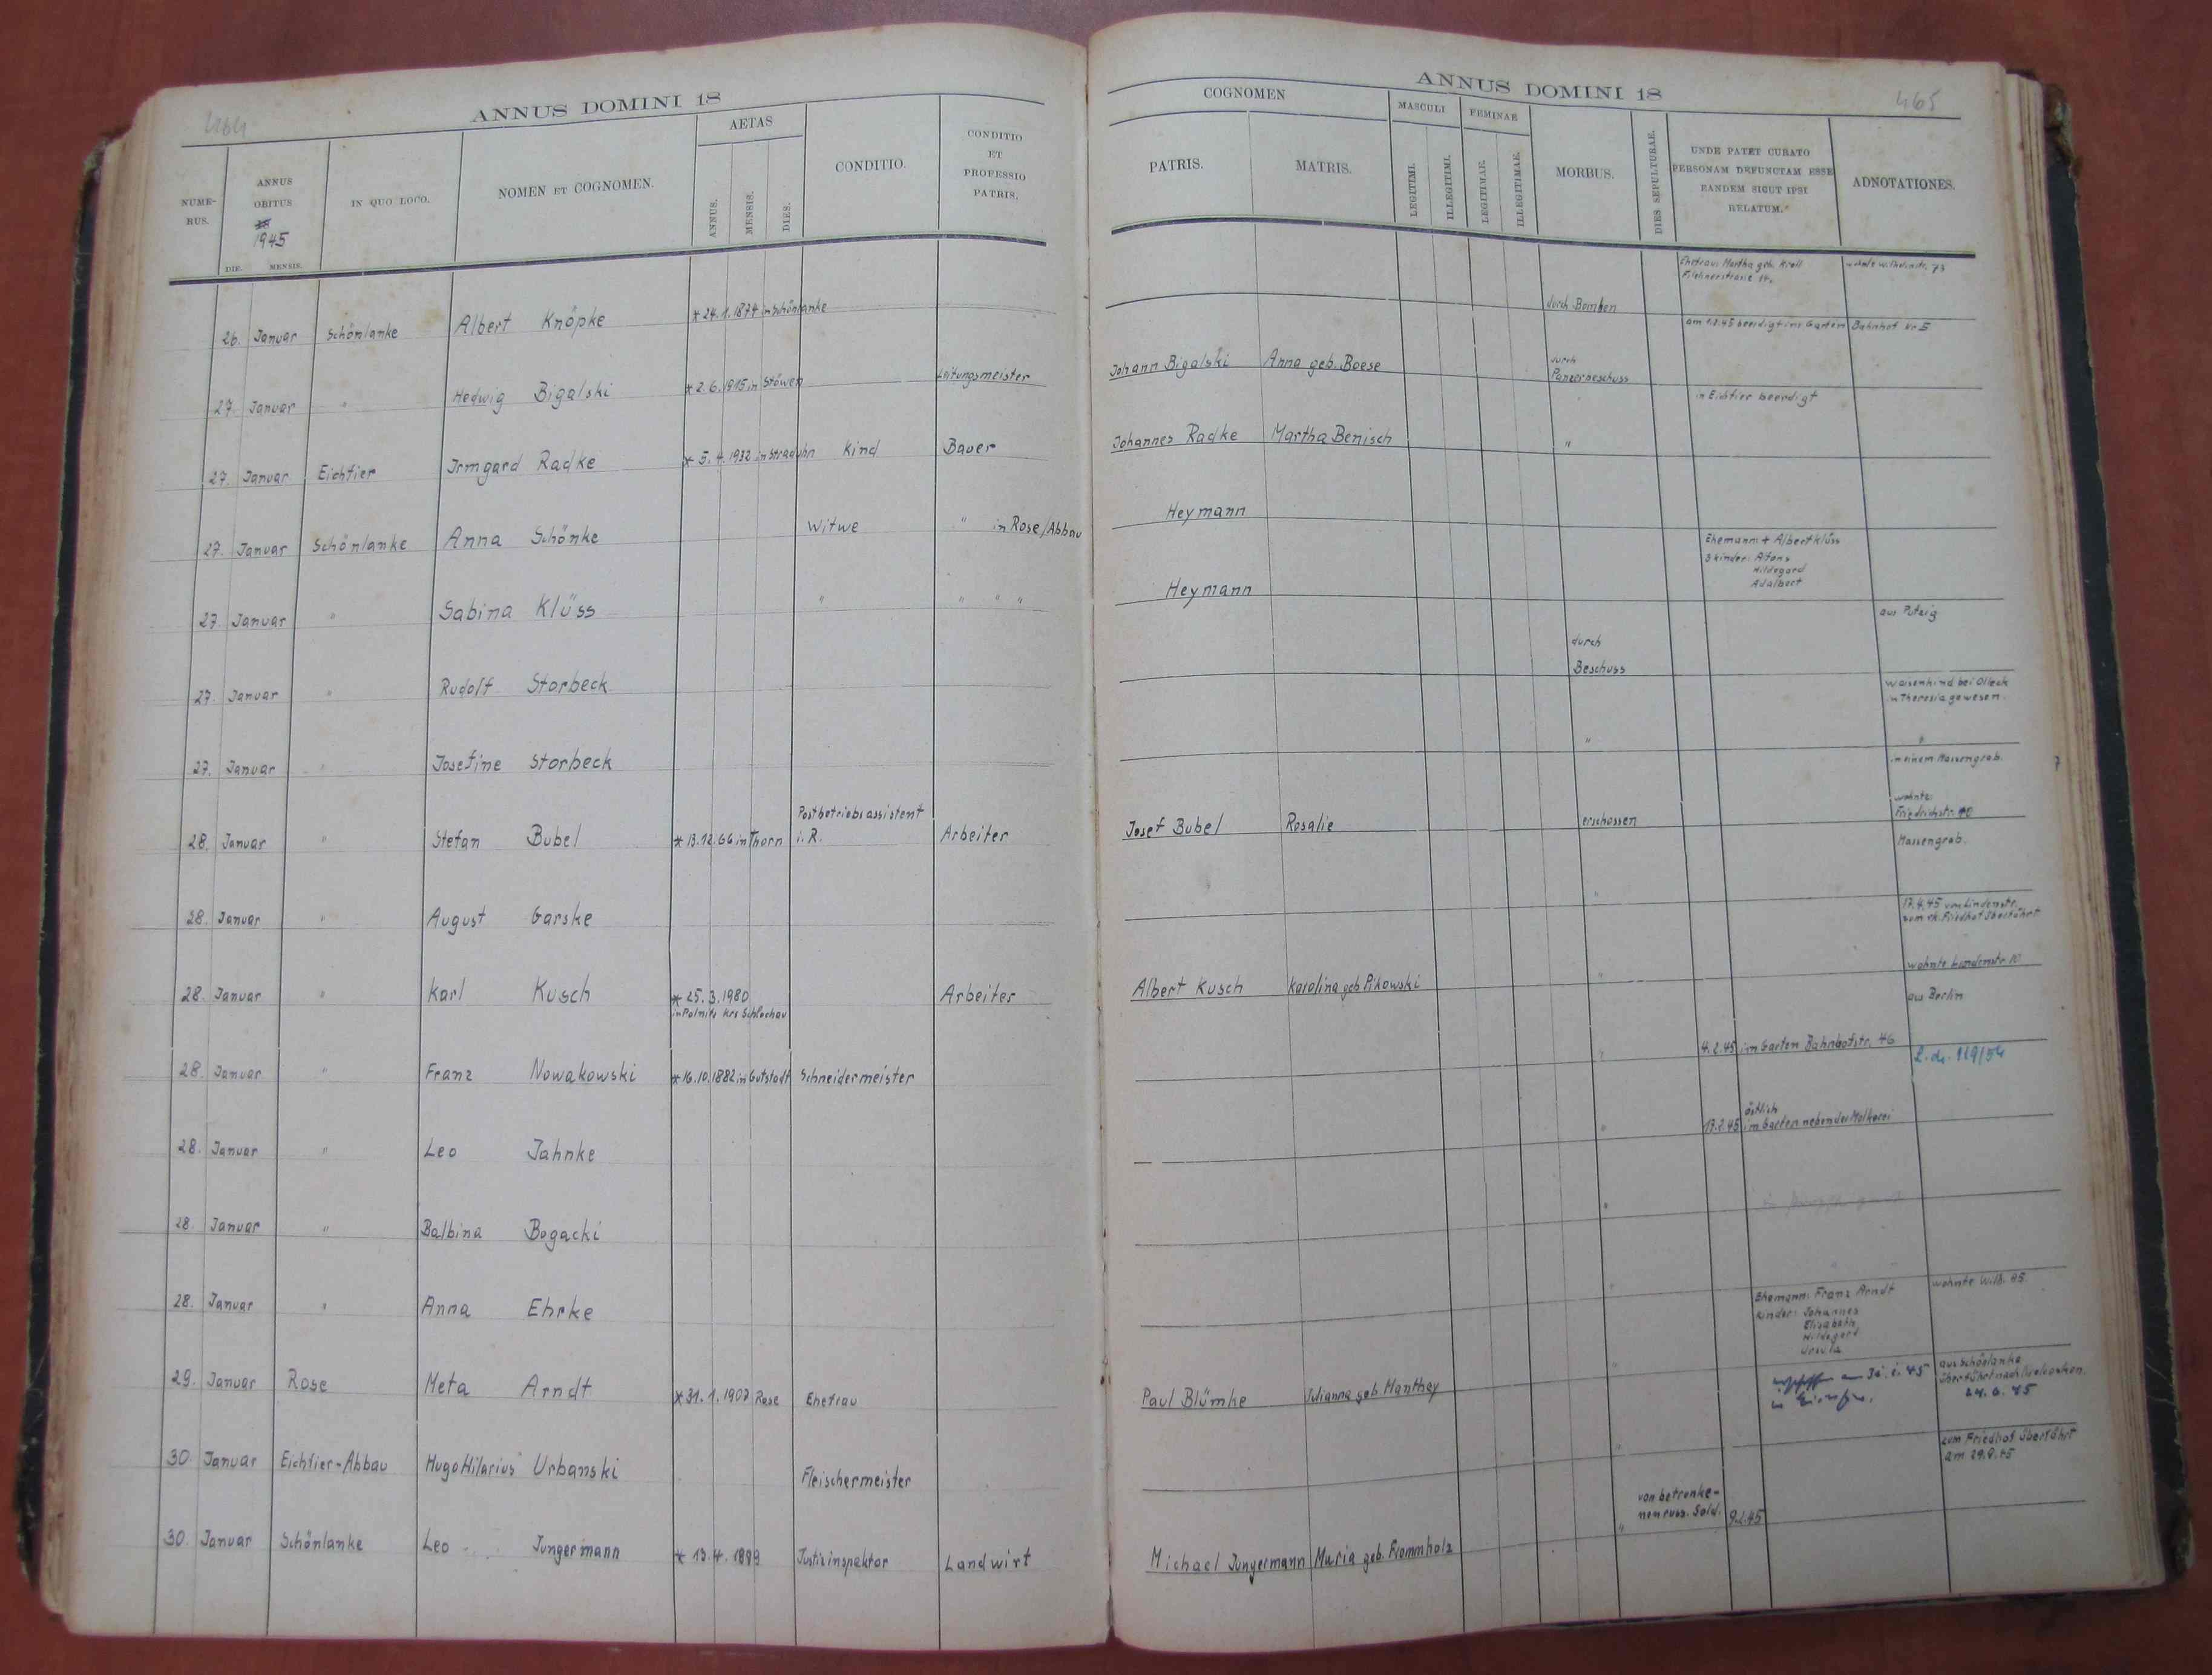 464
ANNUS DOMINI 18
NUME-
RUS.
ANNUS
OBITUS
1945
DIE. MENSIS.
IN QUO LOCO.
NOMEN ET COGNOMEN.
AETAS
ANNUS.
MENSIS.
DIES.
CONDITIO.
CONDITIO
ET
PROFESSIO
PATRIS.
26. Januar Schönlanke Albert Knöpke * 24.1.1874 in Schönlanke
27. Januar " Hedwig Bigalski * 2.6.1915 in Stöwen Leitungsmeister
27. Januar Eichfier Irmgard Radke * 5.4.1932 in Straduhn Kind Bauer
27. Januar Schönlanke Anna Schönke Witwe " in Rose/Abbau
27. Januar " Sabina Klüss " " " "
27. Januar " Rudolf Storbeck
27. Januar " Josefine Storbeck
28. Januar " Stefan Bubel * 13.12.66 in Thorn Postbetriebsassistent
i.R. Arbeiter
28. Januar " August Garske
28. Januar " Karl Kusch * 25.3.1980 Arbeiter
Krs Schlochau
28. Januar " Franz Nowakowski * 16.10.1882 in Gutstadt Schneidermeister
28. Januar " Leo Jahnke
28. Januar " Balbina Bogacki
28. Januar " Anna Ehrke
29. Januar Rose Meta Arndt * 31.1.1907 Rose Ehefrau
30 Januar Eichfier-Abbau Hugo Hilarius Urbanski Fleischermeister
30. Januar Schönlanke Leo Jungermann * 13.4.1899 Justizinspektor Landwirt
465
ANNUS DOMINI 18
COGNOMEN
PATRIS.
MATRIS.
MASCULI
LEGITIMI.
ILLEGITIMI.
FEMINAE
LEGITIMAE.
ILLEGITIMAE.
MORBUS.
DIES SEPULTURAE.
UNDE PATET CURATO
PERSONAM DEFUNCTAM ESSE
EANDEM SICUT IPSI
RELATUM.
ADNOTATIONES.
Ehefrau: Martha geb. Kroll
14.
wohnte Wilhelmstr. 73
durch Bomben
beerdigt im Garten Bahnhof Nr 5
Johann Bigalski Anna geb. Boese durch
Panzerbeschuss
in Eichfier beerdigt
Johannes Radke Martha Benisch "
Heymann
Ehemann + Albert Klüss
3 Kinder:
Hildegard
Adalbert
Heymann
aus Putzig
durch
Beschuss
Waisenkind bei
in Theresia gewesen.
" "
in einem Massengrab.
Josef Bubel Rosalie erschossen wohnte
Friedrichstr. 40
Massengrab.
"
17.4.45 von Lindenstr.
zum rk. Friedhof überführt
Albert Kusch Karolina geb Pikowski " wohnte Lindenstr. 10
aus Berlin
" 4.2.45 im Garten Bahnhofstr. 46
119/54
" 17.2.45 östlich
im Garten neben der Molkerei
"
"
Ehemann: Franz Arndt
Kinder: Johannes
Elisabeth
Hildegard
Ursula
wohnte Wilh. 85.
Paul Blümke Julianna geb. Manthey "
aus Schönlanke
überführt nach
24.6.45
" zum Friedhof überführt
am 29.8.45
von betrunke-
nen russ. Sold.
Michael Jungermann Maria geb. Frommholz " 9.2.45